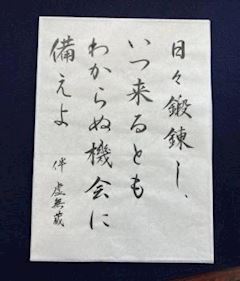 日々鍛錬し、
いつ来るとも
わからぬ機会に
備えよ
伴虚無蔵